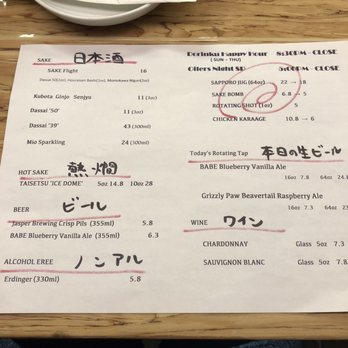 SAKE 日本酒
SAKE Flight 16
Dassai 50(2oz), Horaisen Beshi(2oz), Momokawa Nigori(2oz)
Kubota Ginjo Senjyu 11(3oz)
Dassai '50' 11(3oz)
Dassai '39' 43(300ml)
Mio Sparkling 24(300ml)
HOT SAKE 熱燗
TAISETSU 'ICE DOME' 5oz 14.8 10oz 28
BEER ビール
Jasper Brewing Crisp Pils (355ml) 5.8
BABE Blueberry Vanilla Ale (355ml) 6.3
ALCOHOL FREE ノンアル
Erdinger (330ml) 5.8
Dorinku Happy Hour 8:30PM - CLOSE
(SUN - THU)
Oilers Night SP 5:00PM - CLOSE
SAPPORO JUG (64oz) 22 → 18
SAKE BOMB 6.8 → 5
ROTATING SHOT(1oz) 5
CHICKEN KARAAGE 10.8 → 6
Today's Rotating Tap 本日の生ビール
BABE Blueberry Vanilla Ale
16oz 7.8
Grizzly Paw Beavertail Raspberry Ale
16oz 7.8
WINE ワイン
CHARDONNAY Glass 5oz 7.3
SAUVIGNON BLANC Glass 5oz